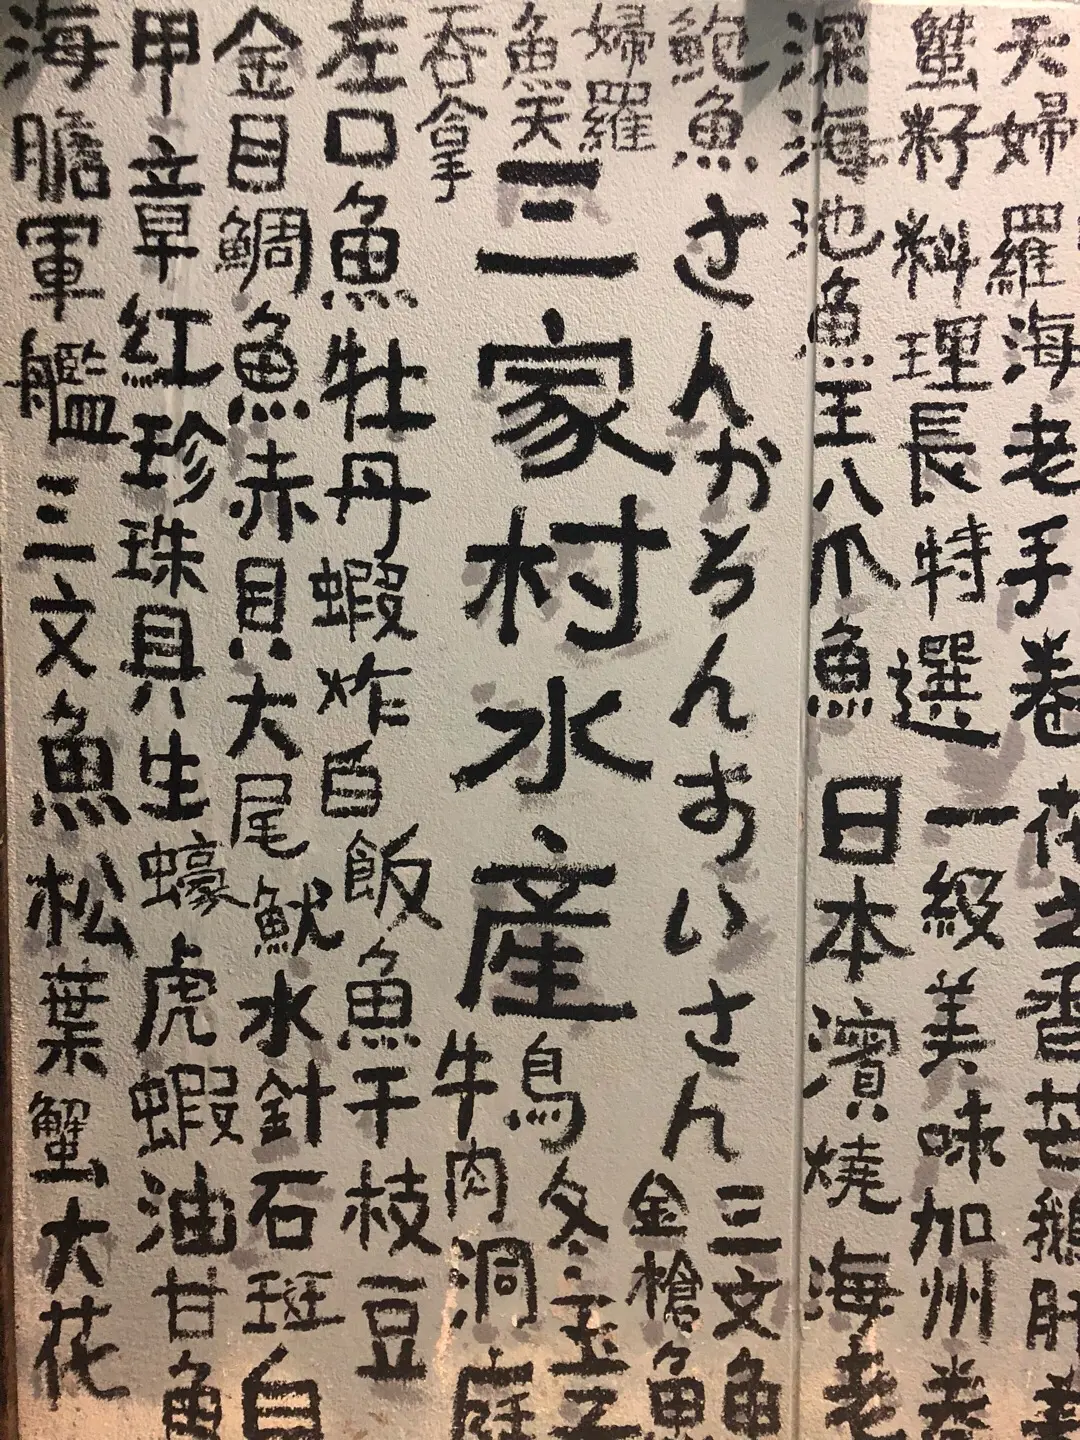 天婦羅海老手卷 花之香芒鵝肝
蟹籽料理長特選 一級美味加州卷
深海池魚王八爪魚 日本濱燒 海老
鮑魚
さんかそんすいさん
三文魚
金槍魚
婦羅
魚天
三家村水產
鳥冬玉之
吞拿
牛肉洞庭
左口魚牡丹蝦炸白飯魚干枝豆
金目鯛魚赤貝大尾魷水針石斑白
甲立章紅珍珠貝生蠔虎蝦油甘魚
海膽軍艦三文魚松葉蟹大花